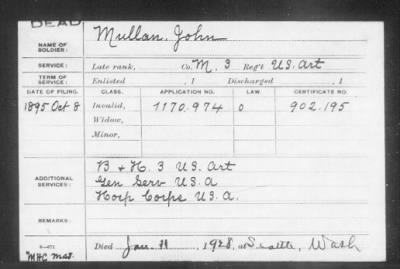 DEAD
NAME OF SOLDIER: Mullan, John
SERVICE: Late rank, Co. M, 3 Reg't U.S. Art
TERM OF SERVICE: Enlisted , 1 Discharged , 1
DATE OF FILING. CLASS. APPLICATION NO. LAW. CERTIFICATE NO.
1895 Oct 8 Invalid, 1170.974 0 902.195
Widow,
Minor,
B & H. 3 U.S. Art
ADDITIONAL SERVICES: Gen Serv U.S.A
Hosp Corps U.S.A.
REMARKS:
Died Jan. 11, 1928, at Seattle, Wash